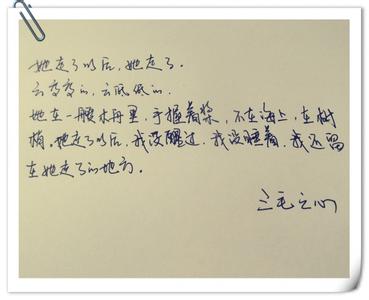 她走了以后，她走了。
云变变的，云低低的，
她在一艘木舟里，手握着桨，不在海上，在树
梢。她走了以后，我没醒过，我没睡着，我还留
在她走了的地方。
三毛之心